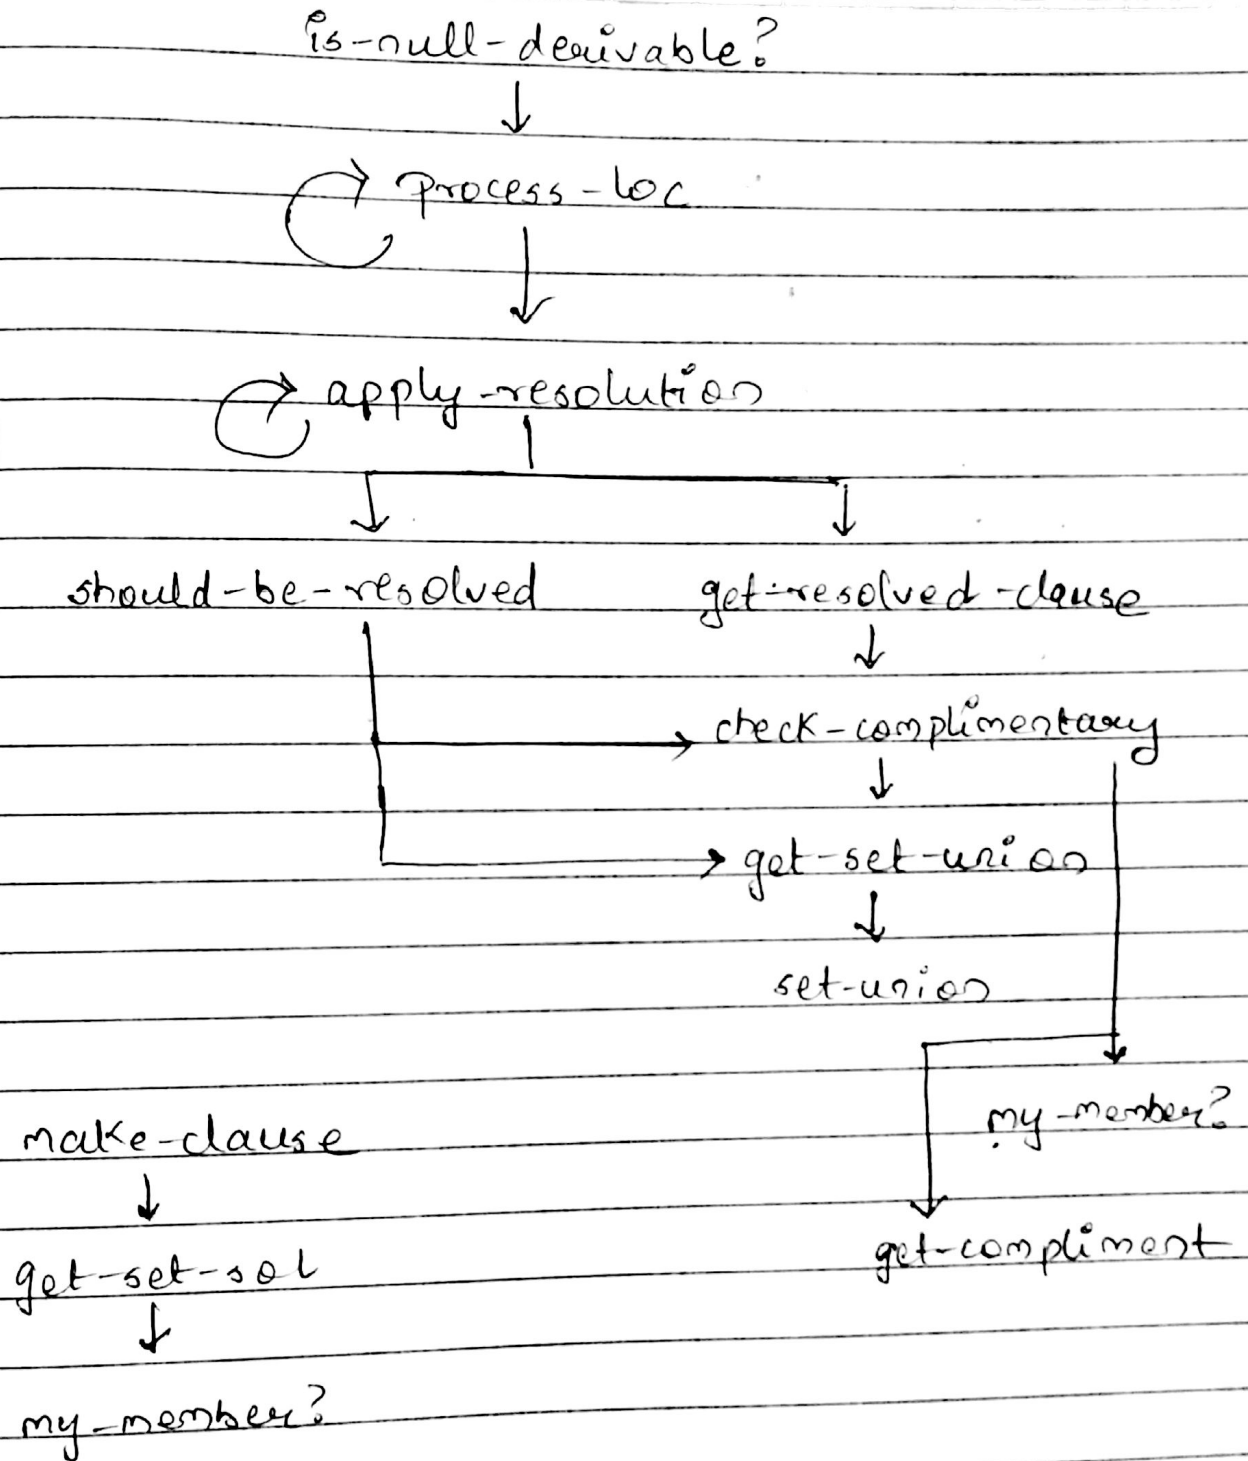 is-null-derivable?
process-loc
apply-resolution
should-be-resolved get-resolved-clause
check-complimentary
get-set-union
set-union
my-member?
make-clause
get-compliment
get-set-sol
my-member?